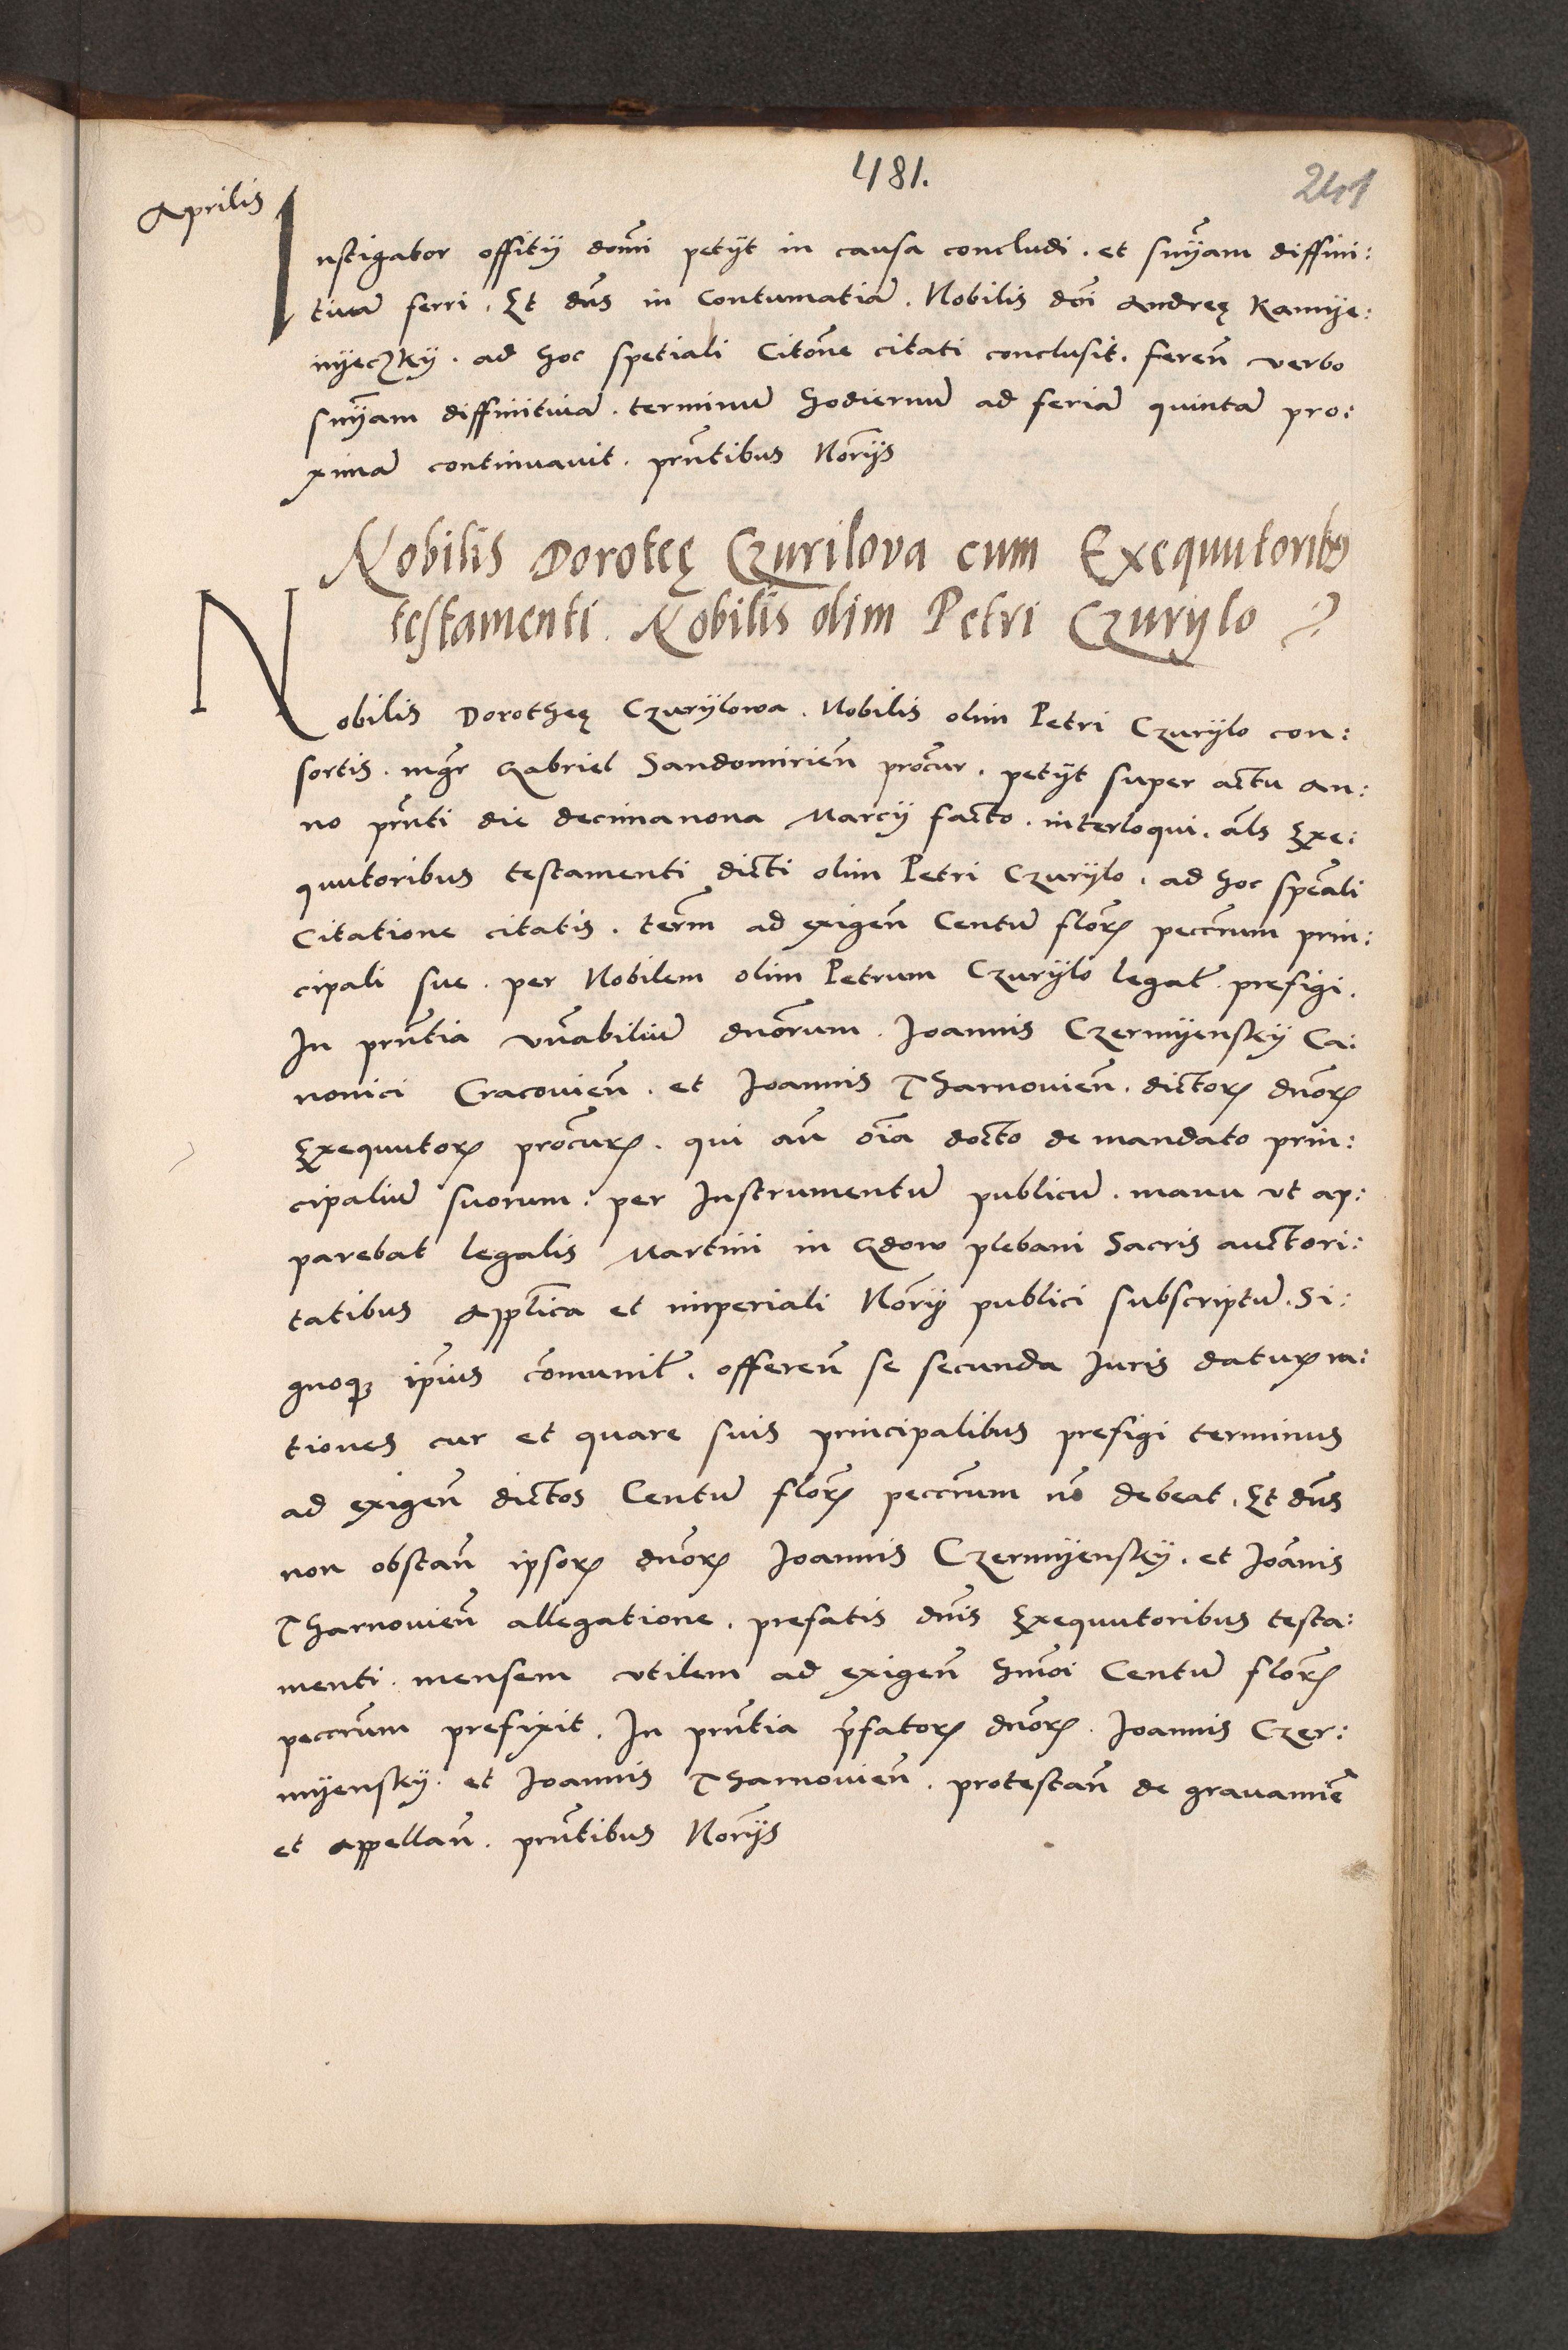 481.
241
Aprilis
Instigator offitÿ domi petÿt in causa concludi . et snÿam diffini:
tiuā ferri . Et dns in Contumatiā . Nobilis doi Andreę Kamÿe:
nÿeczkÿ . ad hoc spetiali Citone citati conclusit . feren verbo
snÿam diffinitiuā . terminū hodiernū ad feriā quintā pro:
ximā continuauit . prntibus Norÿs
Nobilis Doroteę Czurilova cum Exequutoribs
testamenti . Nobilis olim Petri Czurÿlo
Nobilis Dorotheę Czurÿlowa . Nobilis olim Petri Czurÿlo con:
sortis . mgr Gabriel Sandomirien procur . petÿt super actu an:
no prnti die decimanona Marcÿ facto . interloqui . als Exe:
quutoribus testamenti dicti olim Petri Czurÿlo . ad hoc speali
Citatione citatis . term ad exigen Centū florꝝ peccrum prin:
cipali sue . per Nobilem olim Petrum Czurÿlo legat . prefigi .
In prntia vnabiliū dnorum . Joannis Czermÿenskÿ Ca:
nonici Cracovien . et Joannis Tharnovien . dictorꝝ dnorꝝ
Exequutorꝝ procurꝝ . qui an oia docto de mandato prin:
cipaliū suorum : per Instrumentū publicū . manu vt ap:
parebat legalis Martini in Gdow plebani Sacris auctori:
tatibus Applica et imperiali Norÿ publici subscriptū . Si:
gnoqꝫ ipius comunit . offeren se secunda Juris daturꝝ ra:
tiones cur et quare suis principalibus prefigi terminus
ad exigen dictos Centū florꝝ peccrum no debeat . Et dns
non obstan ipsorꝝ dnorꝝ Joannis Czermÿenskÿ . et Joanis
Tharnovien allegatione . prefatis dnis Exequutoribus testa:
menti . mensem vtilem ad exigen hmoi Centū florꝝ
peccrum prefixit . In prntia pfatorꝝ dnorꝝ . Joannis Czer:
mÿenskÿ . et Joannis Tharnovien . protestan de gravamiē
et appellan . prntibus Norÿs